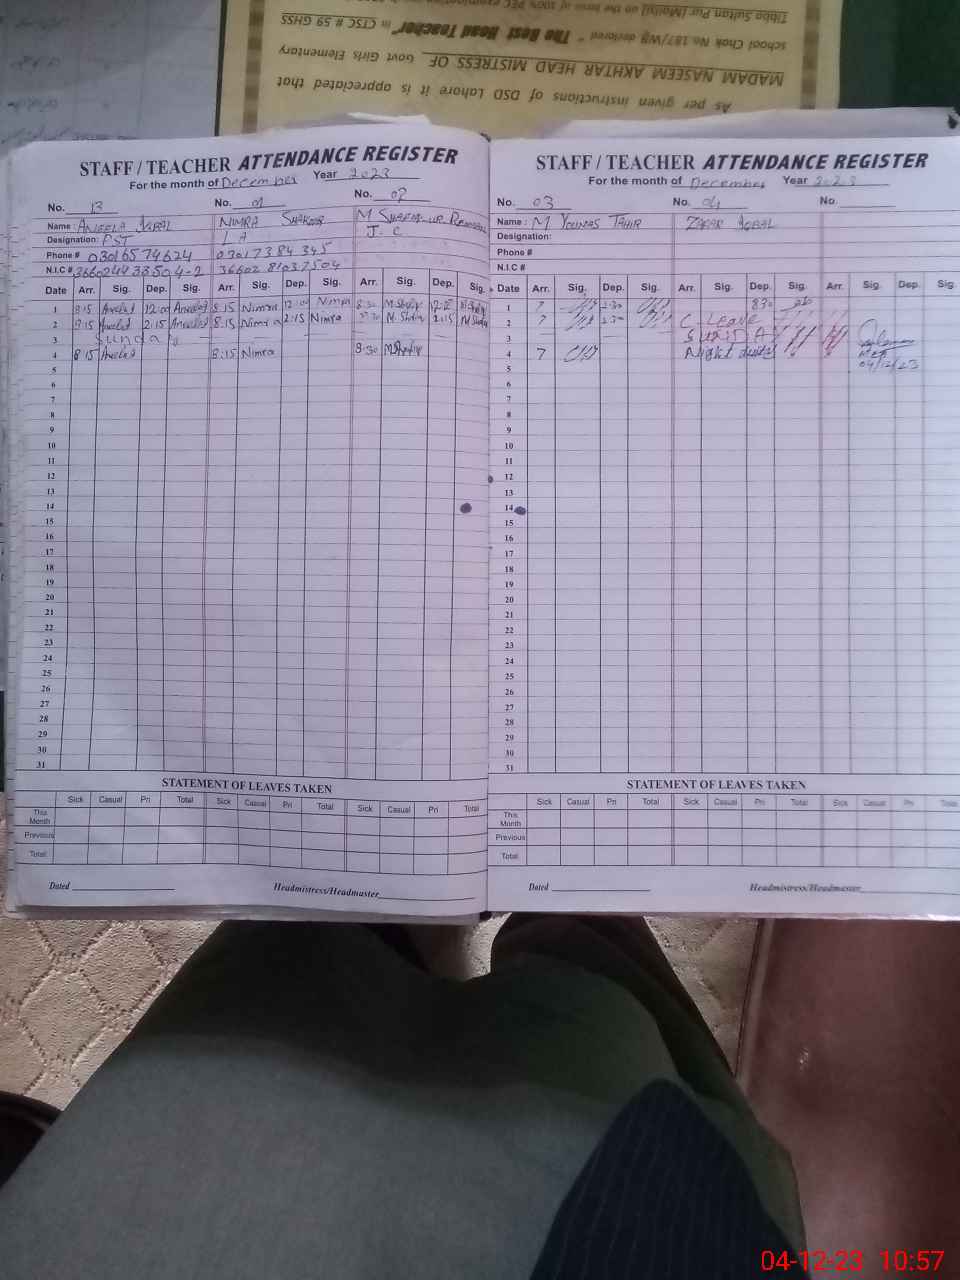 As per given instructions of DSD Lahore it is appreciated that
MADAM NASEEM AKHTAR HEAD MISTRESS OF Govt Girls Elementary
school Chak No.187/WB declared " The Best Head Teacher" in CTSC # 59 GHSS
Tibba Sultan Pur (Mailsi) on the basis of 100% PEC
STAFF / TEACHER ATTENDANCE REGISTER
For the month of December Year 2023
No. 13 No. 01 No. 02
Name : ANEELA IQBAL NIMRA SHAKOOR M
Designation: PST L A J. C
Phone # 03016574624 03017384345
N.I.C # 366024433504-2 36602 81037504
Date Arr. Sig. Dep. Sig. Arr. Sig. Dep. Sig. Arr. Sig. Dep. Sig.
1 8:15 12:00 8:15 Nimra 12:00 Nimra 8:30
2 8:15 2:15 8:15 Nimra 2:15 Nimra 2:15
3 Sunday
4 8:15 8:15 Nimra 8:30
5
6
7
8
9
10
11
12
13
14
15
16
17
18
19
20
21
22
23
24
25
26
27
28
29
30
31
STATEMENT OF LEAVES TAKEN
Sick Casual Pri Total Sick Casual Pri Total Sick Casual Pri Total
This Month
Previous
Total
Dated Headmistress/Headmaster
STAFF / TEACHER ATTENDANCE REGISTER
For the month of December Year 2023
No. 03 No. 04 No.
Name : M YOUNAS TAHIR ZAFAR IQBAL
Designation:
Phone #
N.I.C #
Date Arr. Sig. Dep. Sig. Arr. Sig. Dep. Sig. Arr. Sig. Dep. Sig.
1 7 2:30 830
2 7 2:30 C. Leave
3 SUNDAY
4 7 Night duty
04/12/23
5
6
7
8
9
10
11
12
13
14
15
16
17
18
19
20
21
22
23
24
25
26
27
28
29
30
31
STATEMENT OF LEAVES TAKEN
Sick Casual Pri Total Sick Casual Pri Total Sick Casual Pri Total
This Month
Previous
Total
Dated Headmistress/Headmaster
04-12-23 10:57